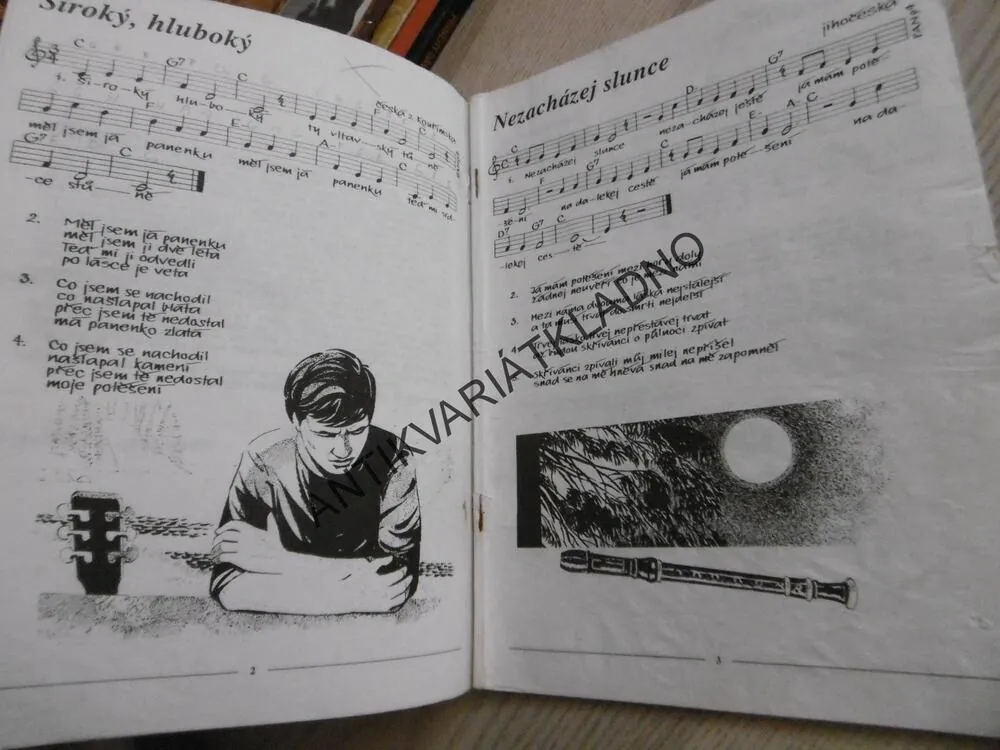 Široký, hluboký
česká z Kouřimska
C G7 C F C
1. Ši-ro-ký hlu-bo-ký ty vltav-ský tů ně
F E A C
měl jsem já panenku měl jsem já panenku teď mi td-
G7 C
-ce stů ně
2. Měl jsem já panenku
měl jsem ji dvě léta
Teď mi ji odvedli
po lásce je veta
3. Co jsem se nachodil
co našlapal bláta
přec jsem tě nedostal
má panenko zlatá
4. Co jsem se nachodil
našlapal kamení
přec jsem tě nedostal
moje potěšení
2
Nezacházej slunce
jihočeská
C D G7
1. Nezacházej slunce neza-cházej ještě já mám potě
F G7 C E A C
še-ní na da-lekej cestě já mám potě-šení na da-
D7 G7 C
-lekej ces-tě
2. Já mám potěšení mezi
žádnej neuvěří
3. Mezi náma dvouma láska nejstálejší
a ta musí trvat do smrti nejdelší
Trvej lásko trvej nepřestávej trvat
budou skřivánci o půlnoci zpívat
Skřivánci zpívali můj milej nepřišel
snad se na mě hněvá snad na mě zapomněl
3
ANTIKVARIÁTKLADNO